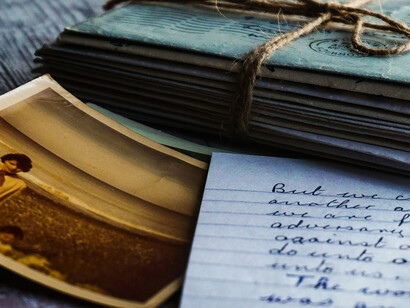 But we c
another a
we are f
adversari
against o
do unto o
unto us.
The wo
was